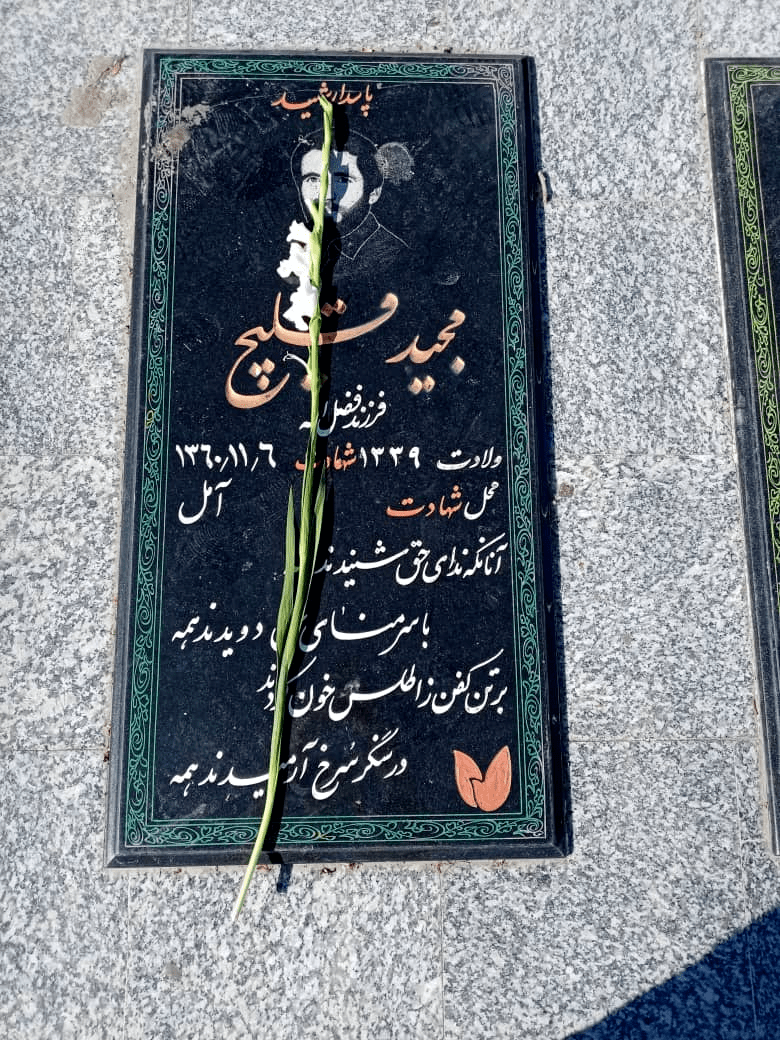 پاسدار شهید
مجید قلیچ
فرزند فضل اله
ولادت ۱۳۳۹ شهادت ۱۳۶۰٫۱۱٫۶
محل شهادت آمل
آنانکه ندای حق شنیدند
با سر منای دویدند همه
بر تن کفن ز اطلس خون کردند
در سنگر سرخ آرمیدند همه